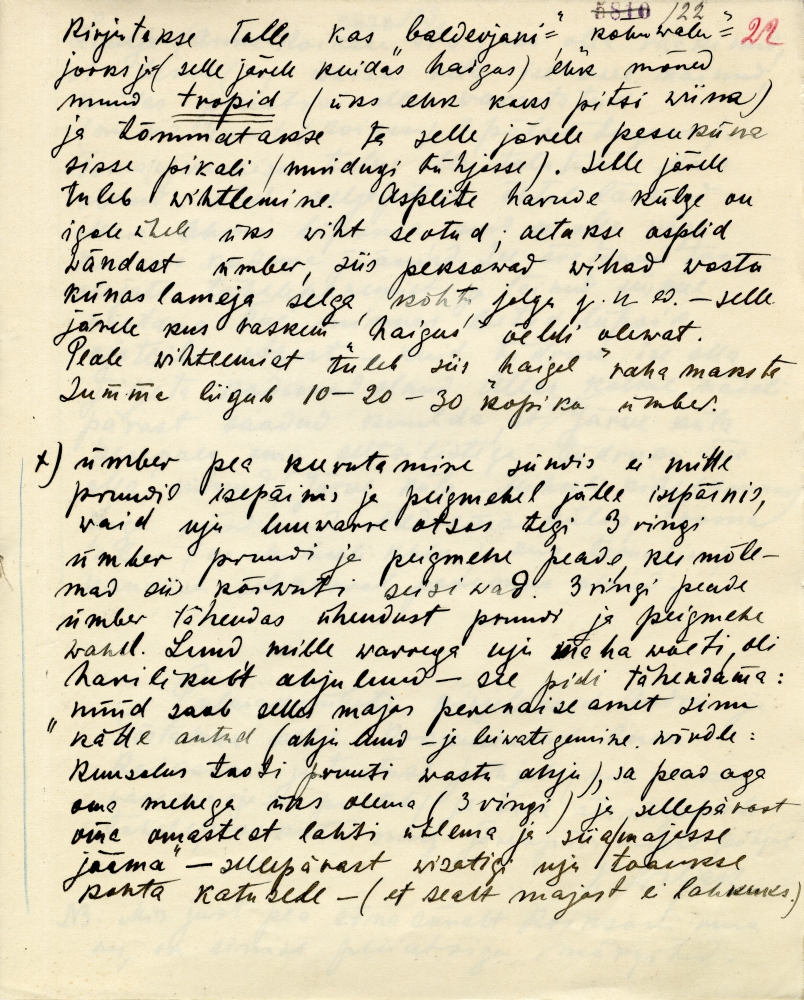 5810 /22 22
Kirjutakse talle kas "balderjani=" "kõhuwalu="
jooksja (selle järele kuidas haigus) ehk mõned
muud tropid (üks ehk kaks pitsi wiina)
ja tõmmatakse ta selle järele pesuküna
sisse pikali (muidugi tühjasse). Selle järele
tuleb wihtlemine. Asplite harude külge on
igale ühele üks wiht seotud; aetakse asplid
wändast ümber, siis peksawad wihad wastu
künas lameja selga, kõhtu, jalga j. n. e. – selle
järele kus raskem "haigus" öeldi olewat.
Peale wihtlemist tuleb siis haigel raha maksta
Summa liigub 10–20–30 kopika ümber.
x) ümber pea keerutamine sündis ei mitte
pruudil isepäinis ja peigmehel jälle isepäinis,
waid uju luuwarre otsas tegi 3 ringi
ümber pruudi ja peigmehe peade, kes mõle-
mad siis kõrwuti seisiwad. 3 ringi peade
ümber tähendas ühendust pruudi ja peigmehe
wahel. Luud mille warrega uju maha wõeti, oli
harilikult ahjuluud – see pidi tähendama:
"nüüd saab selles majas perenaise amet sinu
kätte antud (ahju luud – ja leiwategemine. wõrdle:
Kuusalus tõsti pruuti wastu ahju), sa pead aga
oma mehega üks olema (3 ringi) ja sellepärast
oma omastest lahti ütlema ja siia majasse
jääma" – sellepärast wisatigi uju toaukse
kohta katusele – (et sealt majast ei lahkuks.)